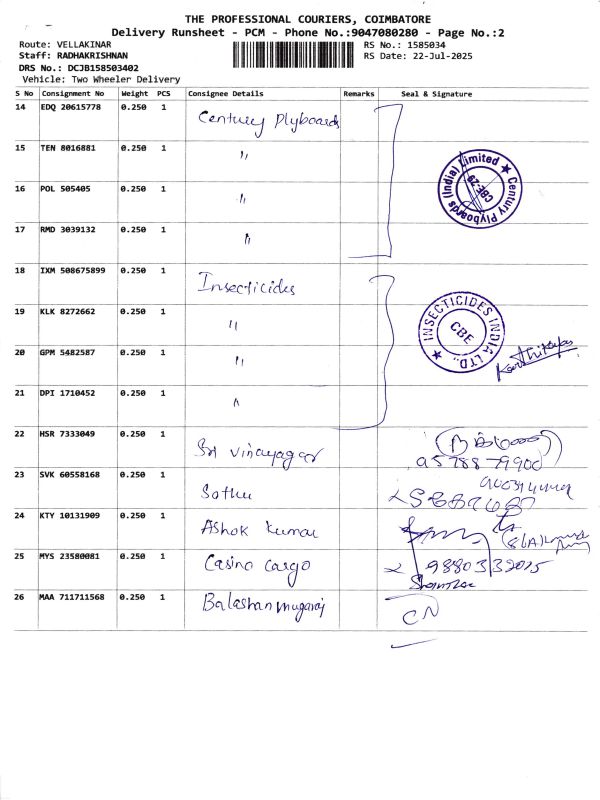 THE PROFESSIONAL COURIERS, COIMBATORE
Delivery Runsheet - PCM - Phone No.:9047080280 - Page No.:2
Route: VELLAKINAR
RS No.: 1585034
Staff: RADHAKRISHNAN
RS Date: 22-Jul-2025
DRS No.: DCJB158503402
Vehicle: Two Wheeler Delivery
S No Consignment No Weight PCS Consignee Details Remarks Seal & Signature
14 EDQ 20615778 0.250 1 Century Plyboards
15 TEN 8016881 0.250 1 "
Century Plyboards (India) Limited ★ CBE-29
16 POL 505405 0.250 1 "
17 RMD 3039132 0.250 1 "
18 IXM 508675899 0.250 1 Insecticides
19 KLK 8272662 0.250 1 "
★ INSECTICIDES INDIA LTD. CBE
20 GPM 5482587 0.250 1 "
21 DPI 1710452 0.250 1 "
22 HSR 7333049 0.250 1 Sri Vinayagar
23 SVK 60558168 0.250 1 Sathu
24 KTY 10131909 0.250 1 Ashok kumar
25 MYS 23580081 0.250 1 Casino cargo
26 MAA 711711568 0.250 1 Balashanmugaraj